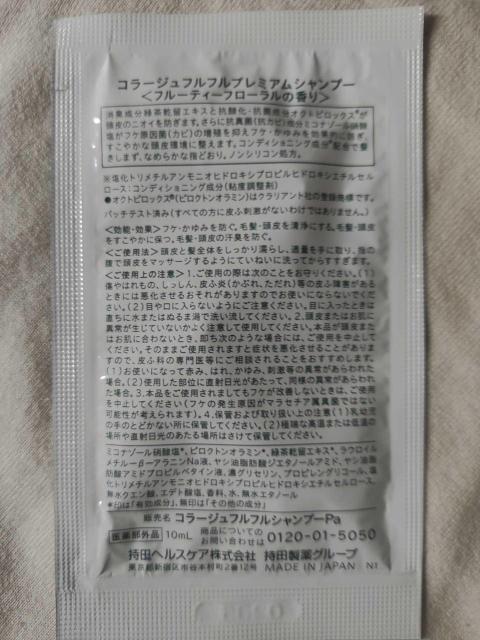 コラージュフルフルプレミアムシャンプー
<フルーティーフローラルの香り>
消臭成分緑茶乾留エキスと抗酸化・抗菌成分オクトピロックス®が
頭皮のニオイを防ぎます。さらに抗真菌(抗カビ)成分ミコナゾール硝酸
塩がフケ原因菌(カビ)の増殖を抑えフケ・かゆみを効果的に防ぎ、
すこやかな頭皮環境に整えます。コンディショニング成分※配合で髪
きしまず、なめらかな指どおり。ノンシリコン処方。
※塩化トリメチルアンモニオヒドロキシプロピルヒドロキシエチルセル
ロース:コンディショニング成分(粘度調整剤)
●オクトピロックス®(ピロクトンオラミン)はクラリアント社の登録商標です。
パッチテスト済み(すべての方に皮ふ刺激がないわけではありません。)
<効能・効果>フケ・かゆみを防ぐ。毛髪・頭皮を清浄にする。毛髪・頭皮
をすこやかに保つ。毛髪・頭皮の汗臭を防ぐ。
<ご使用法>頭皮と髪全体をしっかり濡らし、適量を手に取り、指の
腹で頭皮をマッサージするようにていねいに洗ってからすすぎます。
<ご使用上の注意>1.ご使用の際は次のことをお守りください。(1)
傷やはれもの、しっしん、皮ふ炎(かぶれ、ただれ)等の皮ふ障害がある
ときには悪化させるおそれがありますのでお使いにならないでくだ
さい。(2)目や口に入らないようにご注意ください。目に入ったときは
直ちに水またはぬるま湯で洗い流してください。2.頭皮またはお肌に
異常が生じていないかよく注意して使用してください。本品が頭皮また
はお肌に合わないとき、即ち次のような場合には、ご使用を中止して
ください。そのままご使用されますと症状を悪化させることがありま
すので、皮ふ科の専門医等にご相談されることをおすすめします。
(1)お使いになって赤み、はれ、かゆみ、刺激等の異常があらわれた
場合。(2)使用した部位に直射日光があたって、同様の異常があらわれ
た場合。3.本品をご使用されましてもフケが改善しないときは、ご使用
を中止してください(フケの発生原因がマラセチア属真菌ではない
可能性が考えられます)。4.保管および取り扱い上の注意(1)乳幼児
の手のとどかない所に保管してください。(2)極端な高温または低温の
場所や直射日光のあたる場所はさけて保管してください。
ミコナゾール硝酸塩*、ピロクトンオラミン*、緑茶乾留エキス*、ラウロイル
メチルβ-アラニンNa液、ヤシ油脂肪酸ジエタノールアミド、ヤシ油脂
肪酸アミドプロピルベタイン液、濃グリセリン、プロピレングリコール、塩
化トリメチルアンモニオヒドロキシプロピルヒドロキシエチルセルロース、
無水クエン酸、エデト酸塩、香料、水、無水エタノール
*印は「有効成分」、無印は「その他の成分」
販売名 コラージュフルフルシャンプーPa
医薬部外品 10mL 商品についての お問い合わせは 0120-01-5050
持田ヘルスケア株式会社 持田製薬グループ
東京都新宿区市谷本村町2番12号 MADE IN JAPAN N1